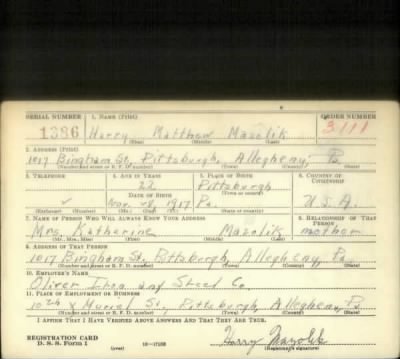 SERIAL NUMBER 1. NAME (Print) ORDER NUMBER
1386 Harry Matthew Mazolik 3111
(First) (Middle) (Last)
2. ADDRESS (Print)
1017 Bingham St, Pittsburgh, Allegheny, Pa.
(Number and street or R. F. D. number) (Town) (County) (State)
3. TELEPHONE 4. AGE IN YEARS 5. PLACE OF BIRTH 6. COUNTRY OF CITIZENSHIP
22 Pittsburgh
DATE OF BIRTH (Town or county)
✓ Nov. 28, 1917 Pa. U.S.A.
(Exchange) (Number) (Mo.) (Day) (Yr.) (State or country)
7. NAME OF PERSON WHO WILL ALWAYS KNOW YOUR ADDRESS 8. RELATIONSHIP OF THAT PERSON
Mrs. Katherine Mazolik mother
(Mr., Mrs., Miss) (First) (Middle) (Last)
9. ADDRESS OF THAT PERSON
1017 Bingham St, Pittsburgh, Allegheny, Pa.
(Number and street or R. F. D. number) (Town) (County) (State)
10. EMPLOYER'S NAME
Oliver Iron and Steel Co
11. PLACE OF EMPLOYMENT OR BUSINESS
10th & Muriel St, Pittsburgh, Allegheny, Pa
(Number and street or R. F. D. number) (Town) (County) (State)
I AFFIRM THAT I HAVE VERIFIED ABOVE ANSWERS AND THAT THEY ARE TRUE.
REGISTRATION CARD
D. S. S. Form 1 (over) Harry Mazolik
(Registrant's signature)